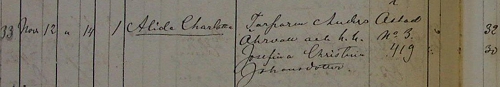 33 Nov 12 14 1 Alida Charlotta Torparen Anders Åstad 32
och h. h. No 3. 30
Josefina Christina 419
Johansdotter.